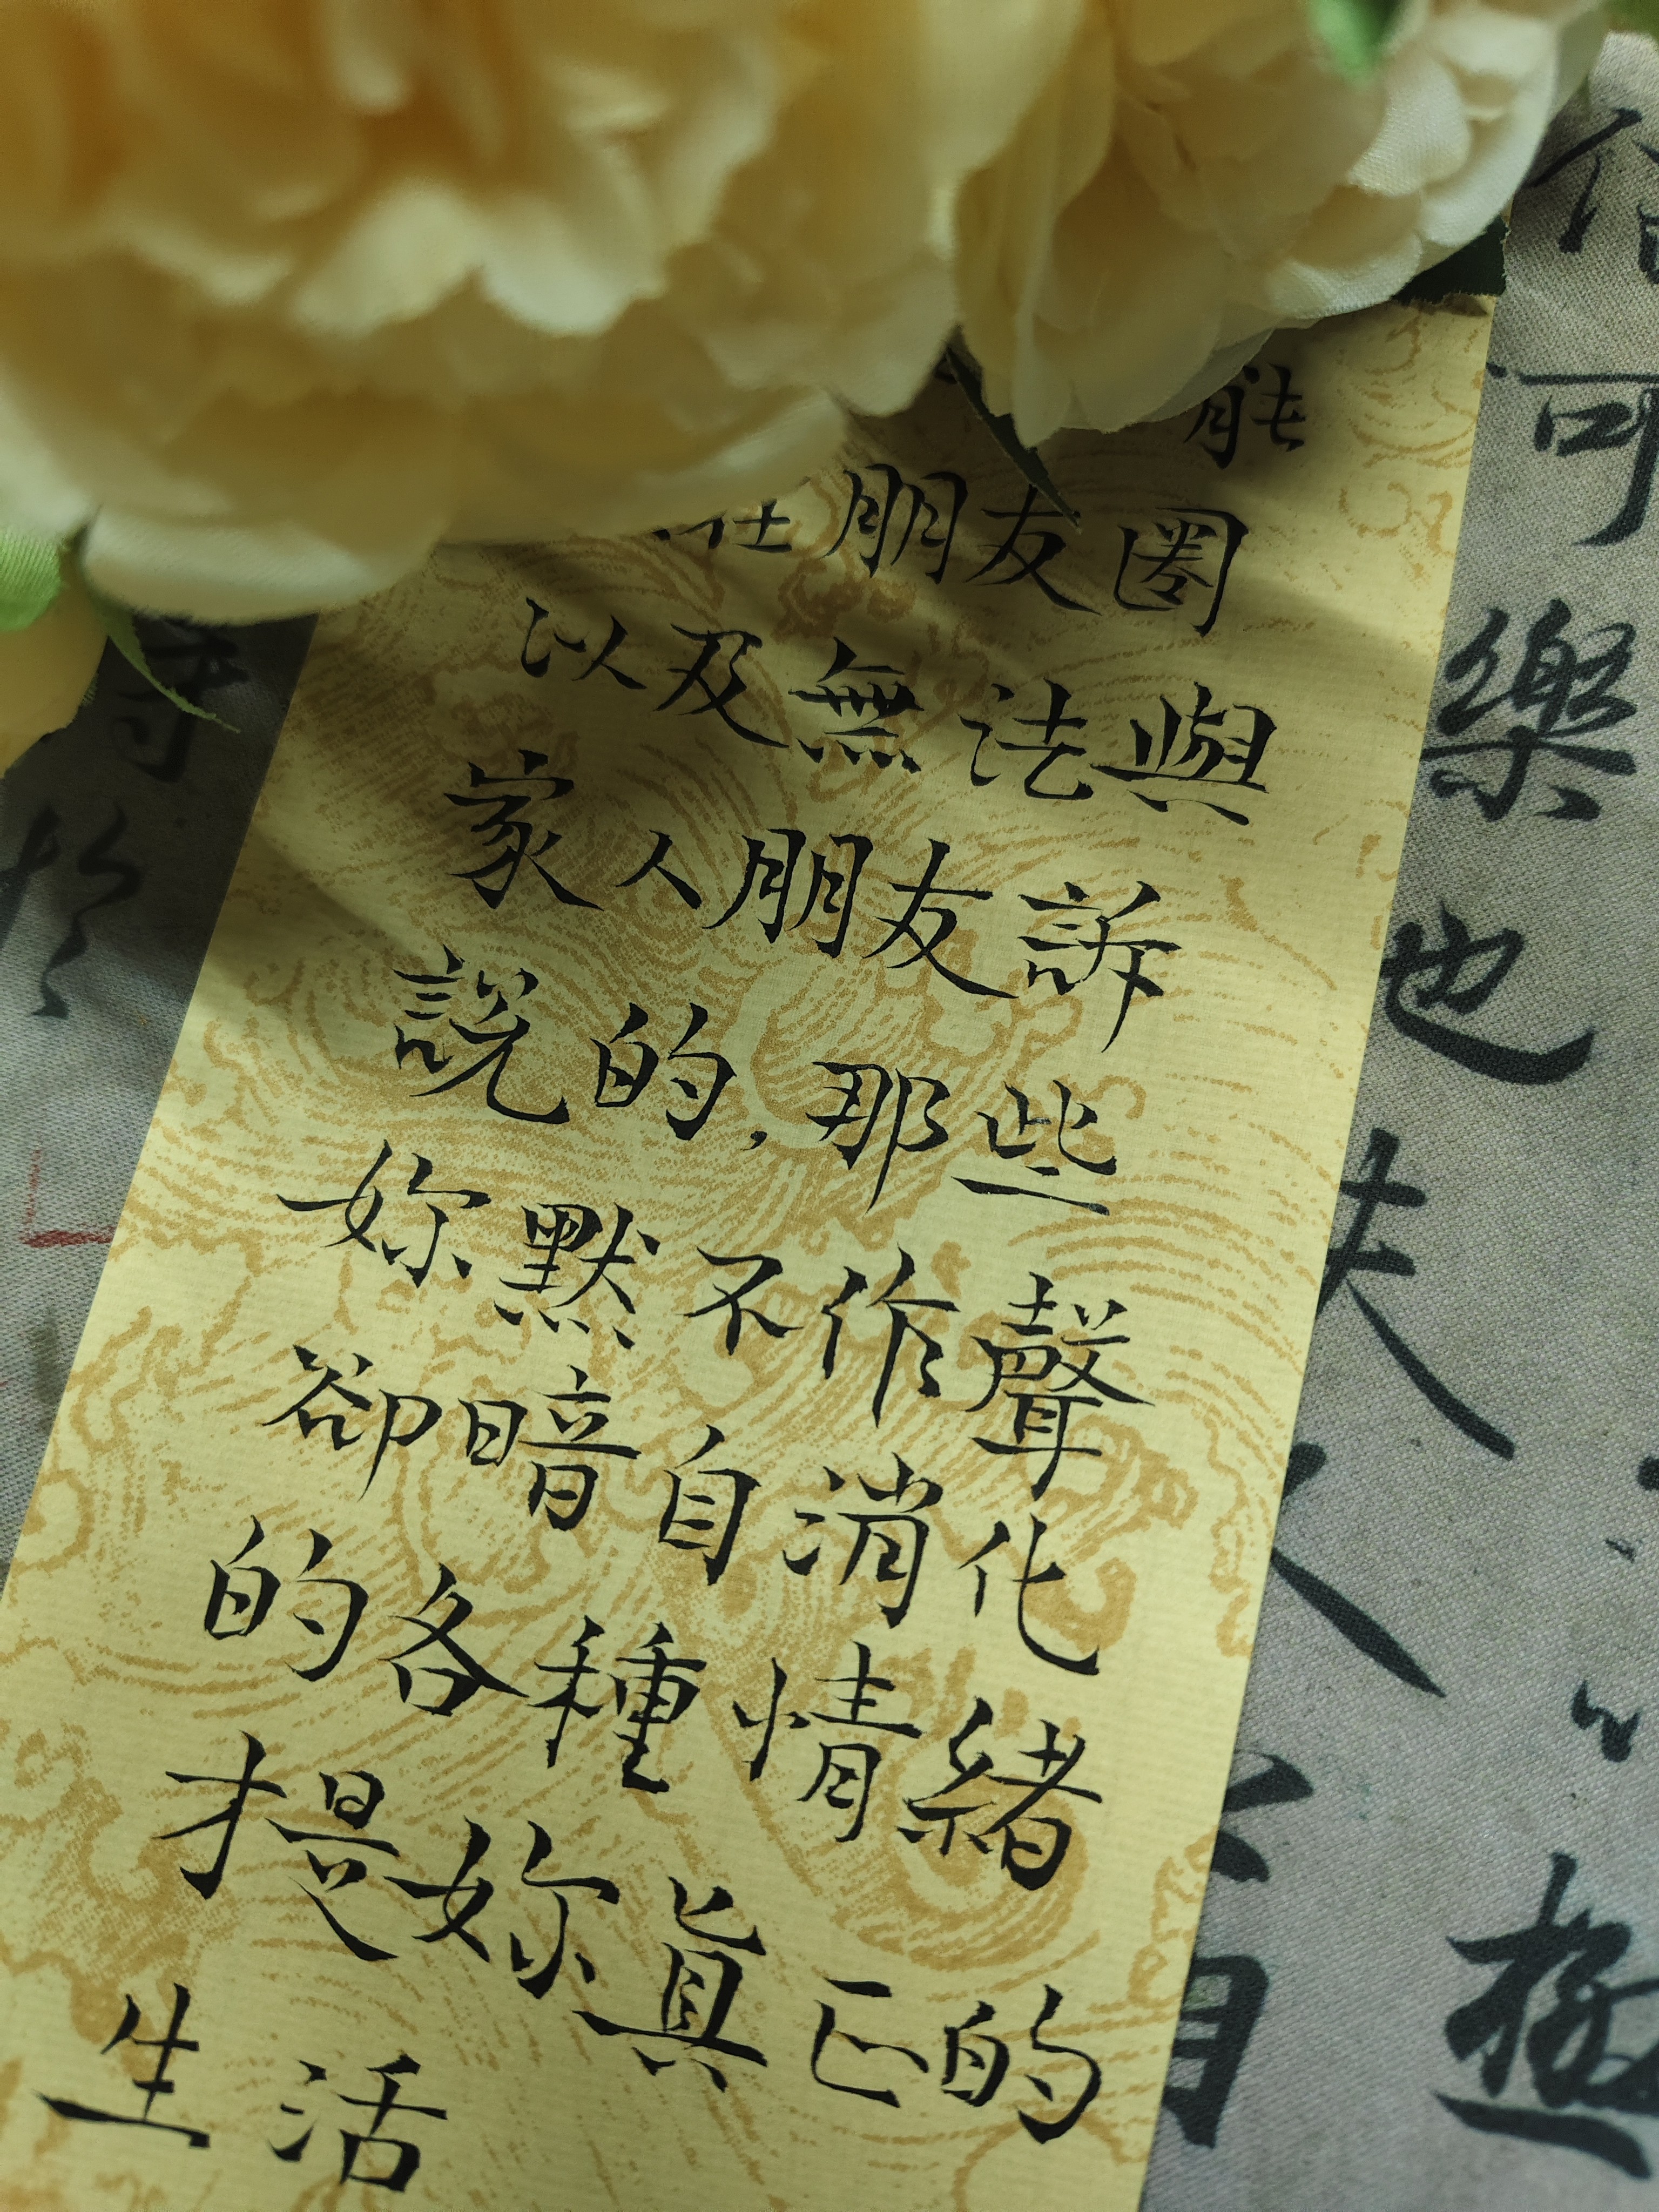 能
在朋友圈
以及無法與
家人朋友訴
説的,那些
妳默不作聲
卻暗自消化
的各種情緒
才是妳眞正的
生活
可
樂
也
夫
極